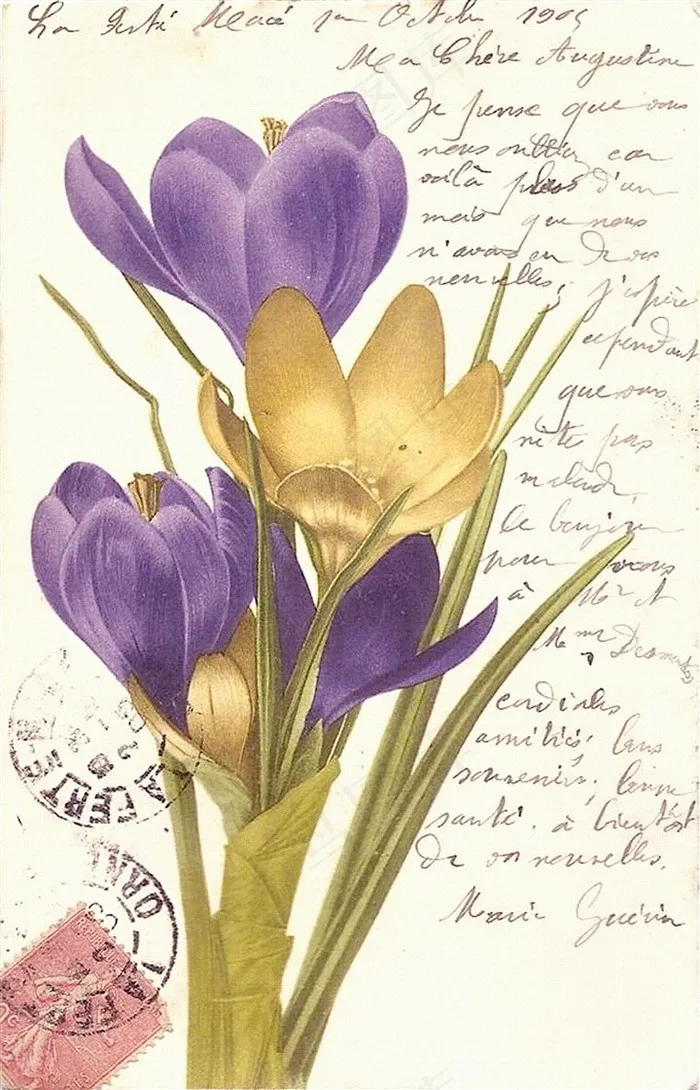 La Ferté Macé 1er Octbre 1905
Ma Chère Augustine
Je pense que vous
nous oubliez car
voilà plus d'un
mois que nous
n'avons eu de vos
nouvelles; j'espère
cependant
que vous
n'ète pas
malade,
le bonjour
pour vous
à Mr et
Mme
cordiales
amitiés bons
souvenirs, bonne
santé. à bientôt
de vos nouvelles.
Marie Guérin
LA FERTÉ-M
ORNE
LA FER